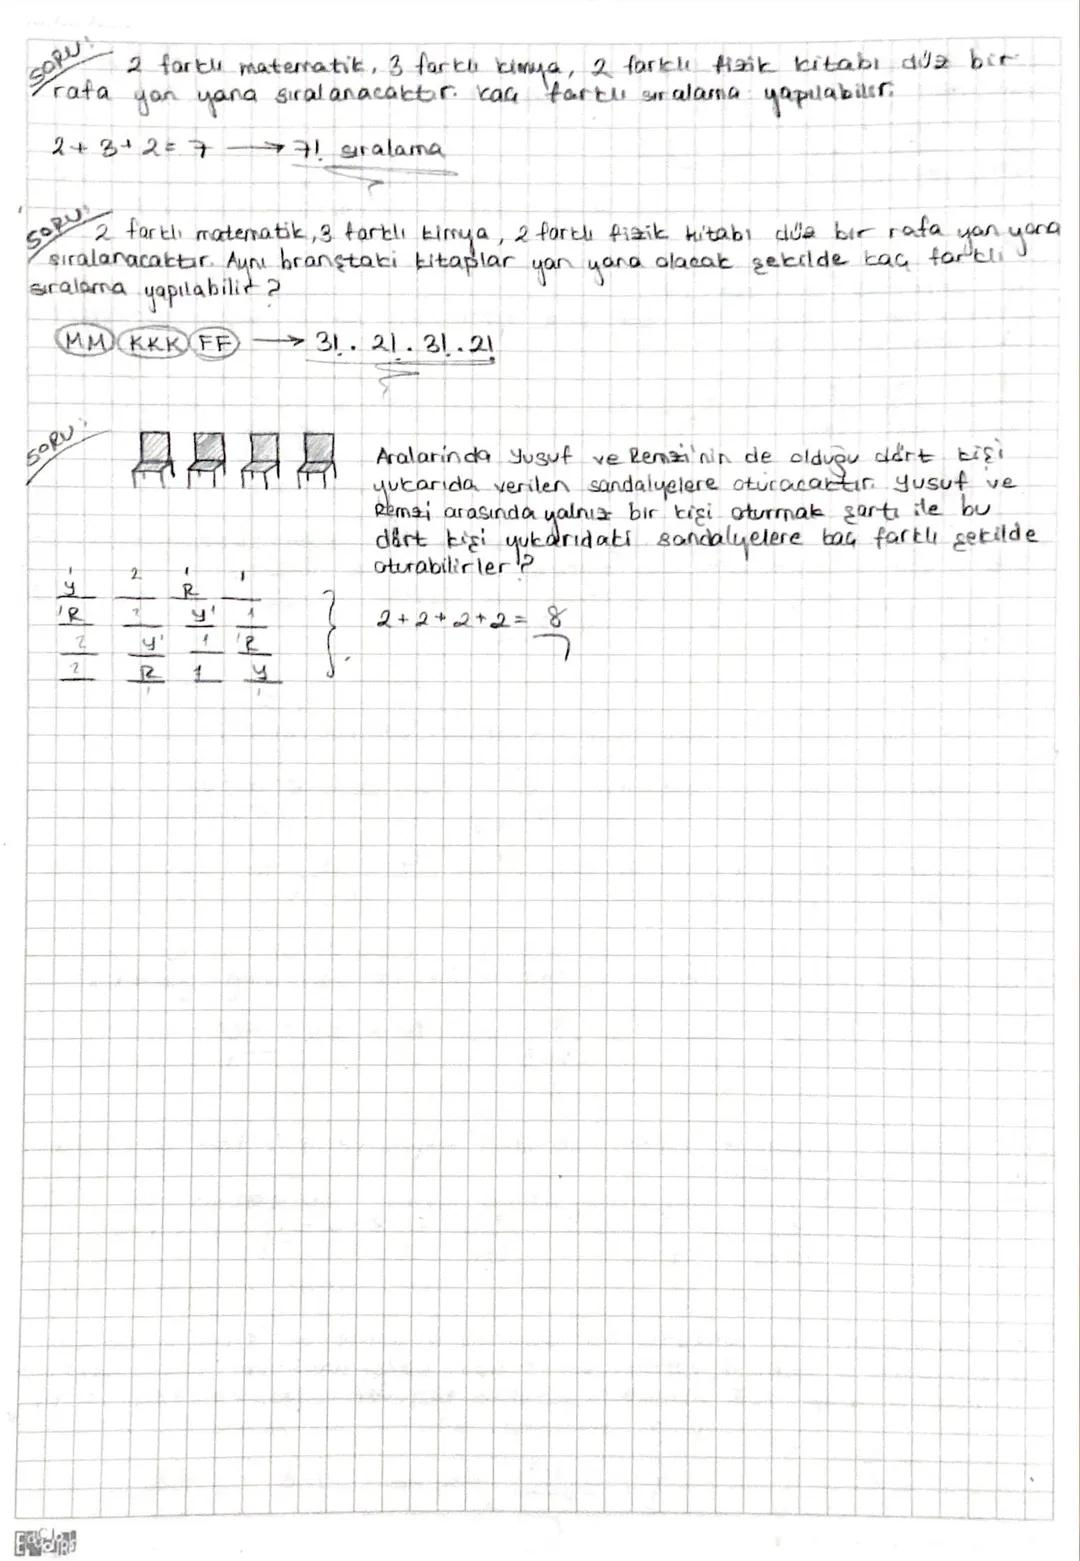 SORU:
2 farklı matematik, 3 farklı kimya, 2 farklı fizik kitabı düz bir
rafa yan yana sıralanacaktır. kaç farklı sıralama yapılabilir.
2+3+2=7 → 7! sıralama
SORU:
2 farklı matematik, 3 farklı kimya, 2 farklı fizik kitabı düz bir rafa yan yana
sıralanacaktır. Aynı branştaki kitaplar yan yana olacak şekilde kaç farklı
sıralama yapılabilir?
MM KKK FF → 3!. 2!. 3!. 2!
SORU:
Aralarında Yusuf ve Remzi'nin de olduğu dört kişi
yukarıda verilen sandalyelere oturacaktır. Yusuf ve
Remzi arasında yalnız bir kişi oturmak şartı ile bu
dört kişi yukarıdaki sandalyelere kaç farklı şekilde
oturabilirler?
1 2 1 1
Y R
1R 2 Y1 1
2 Y1 1 1R
2 R 1 Y
1 1
2+2+2+2= 8